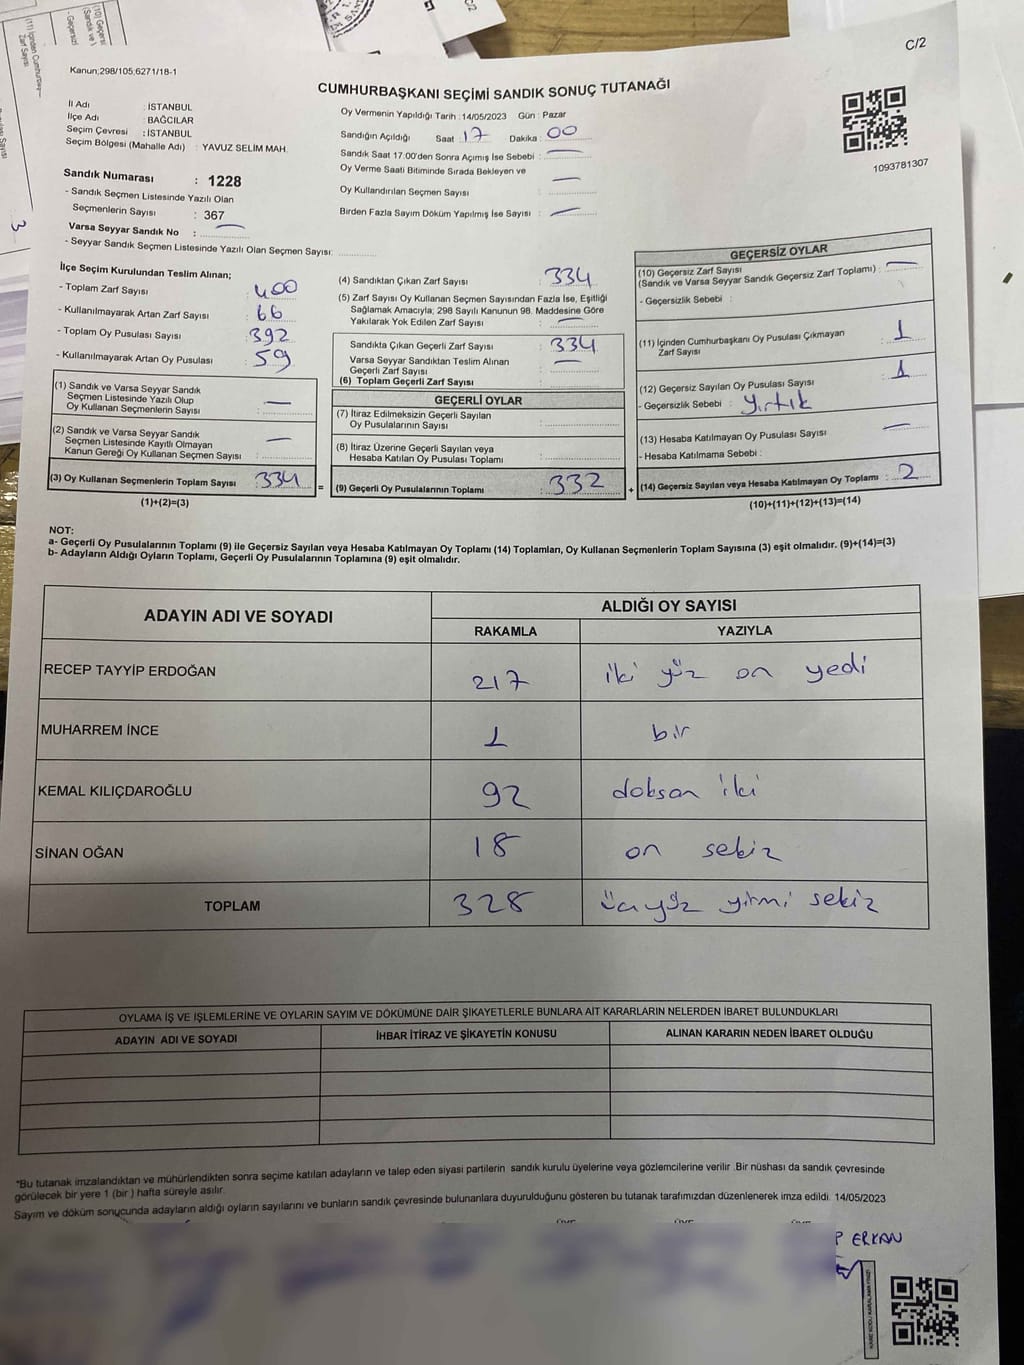 C/2
C/2
Kanun;298/105;6271/18-1
CUMHURBAŞKANI SEÇİMİ SANDIK SONUÇ TUTANAĞI
İl Adı : İSTANBUL
İlçe Adı : BAĞCILAR
Seçim Çevresi : İSTANBUL
Seçim Bölgesi (Mahalle Adı) : YAVUZ SELİM MAH.
Oy Vermenin Yapıldığı Tarih :14/05/2023 Gün : Pazar
Sandığın Açıldığı Saat 17 Dakika : 00
Sandık Saat 17:00'den Sonra Açımış İse Sebebi : —
Oy Verme Saati Bitiminde Sırada Bekleyen ve
Oy Kullandırılan Seçmen Sayısı : —
Birden Fazla Sayım Döküm Yapılmış İse Sayısı : —
1093781307
Sandık Numarası : 1228
- Sandık Seçmen Listesinde Yazılı Olan
Seçmenlerin Sayısı : 367
Varsa Seyyar Sandık No : —
- Seyyar Sandık Seçmen Listesinde Yazılı Olan Seçmen Sayısı:
İlçe Seçim Kurulundan Teslim Alınan;
- Toplam Zarf Sayısı : 400
- Kullanılmayarak Artan Zarf Sayısı : 66
- Toplam Oy Pusulası Sayısı : 392
- Kullanılmayarak Artan Oy Pusulası : 59
(1) Sandık ve Varsa Seyyar Sandık
Seçmen Listesinde Yazılı Olup
Oy Kullanan Seçmenlerin Sayısı : —
(2) Sandık ve Varsa Seyyar Sandık
Seçmen Listesinde Kayıtlı Olmayan
Kanun Gereği Oy Kullanan Seçmen Sayısı : —
(3) Oy Kullanan Seçmenlerin Toplam Sayısı : 334
(1)+(2)=(3)
=
(4) Sandıktan Çıkan Zarf Sayısı : 334
(5) Zarf Sayısı Oy Kullanan Seçmen Sayısından Fazla İse, Eşitliği
Sağlamak Amacıyla; 298 Sayılı Kanunun 98. Maddesine Göre
Yakılarak Yok Edilen Zarf Sayısı : —
Sandıkta Çıkan Geçerli Zarf Sayısı : 334
Varsa Seyyar Sandıktan Teslim Alınan
Geçerli Zarf Sayısı : —
(6) Toplam Geçerli Zarf Sayısı :
GEÇERLİ OYLAR
(7) İtiraz Edilmeksizin Geçerli Sayılan
Oy Pusulalarının Sayısı :
(8) İtiraz Üzerine Geçerli Sayılan veya
Hesaba Katılan Oy Pusulası Toplamı :
(9) Geçerli Oy Pusulalarının Toplamı : 332
+
GEÇERSİZ OYLAR
(10) Geçersiz Zarf Sayısı
(Sandık ve Varsa Seyyar Sandık Geçersiz Zarf Toplamı) : —
- Geçersizlik Sebebi :
(11) İçinden Cumhurbaşkanı Oy Pusulası Çıkmayan
Zarf Sayısı : 1
(12) Geçersiz Sayılan Oy Pusulası Sayısı : 1
- Geçersizlik Sebebi : Yırtık
(13) Hesaba Katılmayan Oy Pusulası Sayısı : —
- Hesaba Katılmama Sebebi :
(14) Geçersiz Sayılan veya Hesaba Katılmayan Oy Toplamı : 2
(10)+(11)+(12)+(13)=(14)
NOT:
a- Geçerli Oy Pusulalarının Toplamı (9) ile Geçersiz Sayılan veya Hesaba Katılmayan Oy Toplamı (14) Toplamları, Oy Kullanan Seçmenlerin Toplam Sayısına (3) eşit olmalıdır. (9)+(14)=(3)
b- Adayların Aldığı Oyların Toplamı, Geçerli Oy Pusulalarının Toplamına (9) eşit olmalıdır.
ADAYIN ADI VE SOYADI
ALDIĞI OY SAYISI
RAKAMLA YAZIYLA
RECEP TAYYİP ERDOĞAN 217 iki yüz on yedi
MUHARREM İNCE 1 bir
KEMAL KILIÇDAROĞLU 92 doksan iki
SİNAN OĞAN 18 on sekiz
TOPLAM 328 üçyüz yirmi sekiz
OYLAMA İŞ VE İŞLEMLERİNE VE OYLARIN SAYIM VE DÖKÜMÜNE DAİR ŞİKAYETLERLE BUNLARA AİT KARARLARIN NELERDEN İBARET BULUNDUKLARI
ADAYIN ADI VE SOYADI İHBAR İTİRAZ VE ŞİKAYETİN KONUSU ALINAN KARARIN NEDEN İBARET OLDUĞU
*Bu tutanak imzalandıktan ve mühürlendikten sonra seçime katılan adayların ve talep eden siyasi partilerin sandık kurulu üyelerine veya gözlemcilerine verilir .Bir nüshası da sandık çevresinde
görülecek bir yere 1 (bir ) hafta süreyle asılır.
Sayım ve döküm sonucunda adayların aldığı oyların sayılarını ve bunların sandık çevresinde bulunanlara duyurulduğunu gösteren bu tutanak tarafımızdan düzenlenerek imza edildi. 14/05/2023
P ERKAN